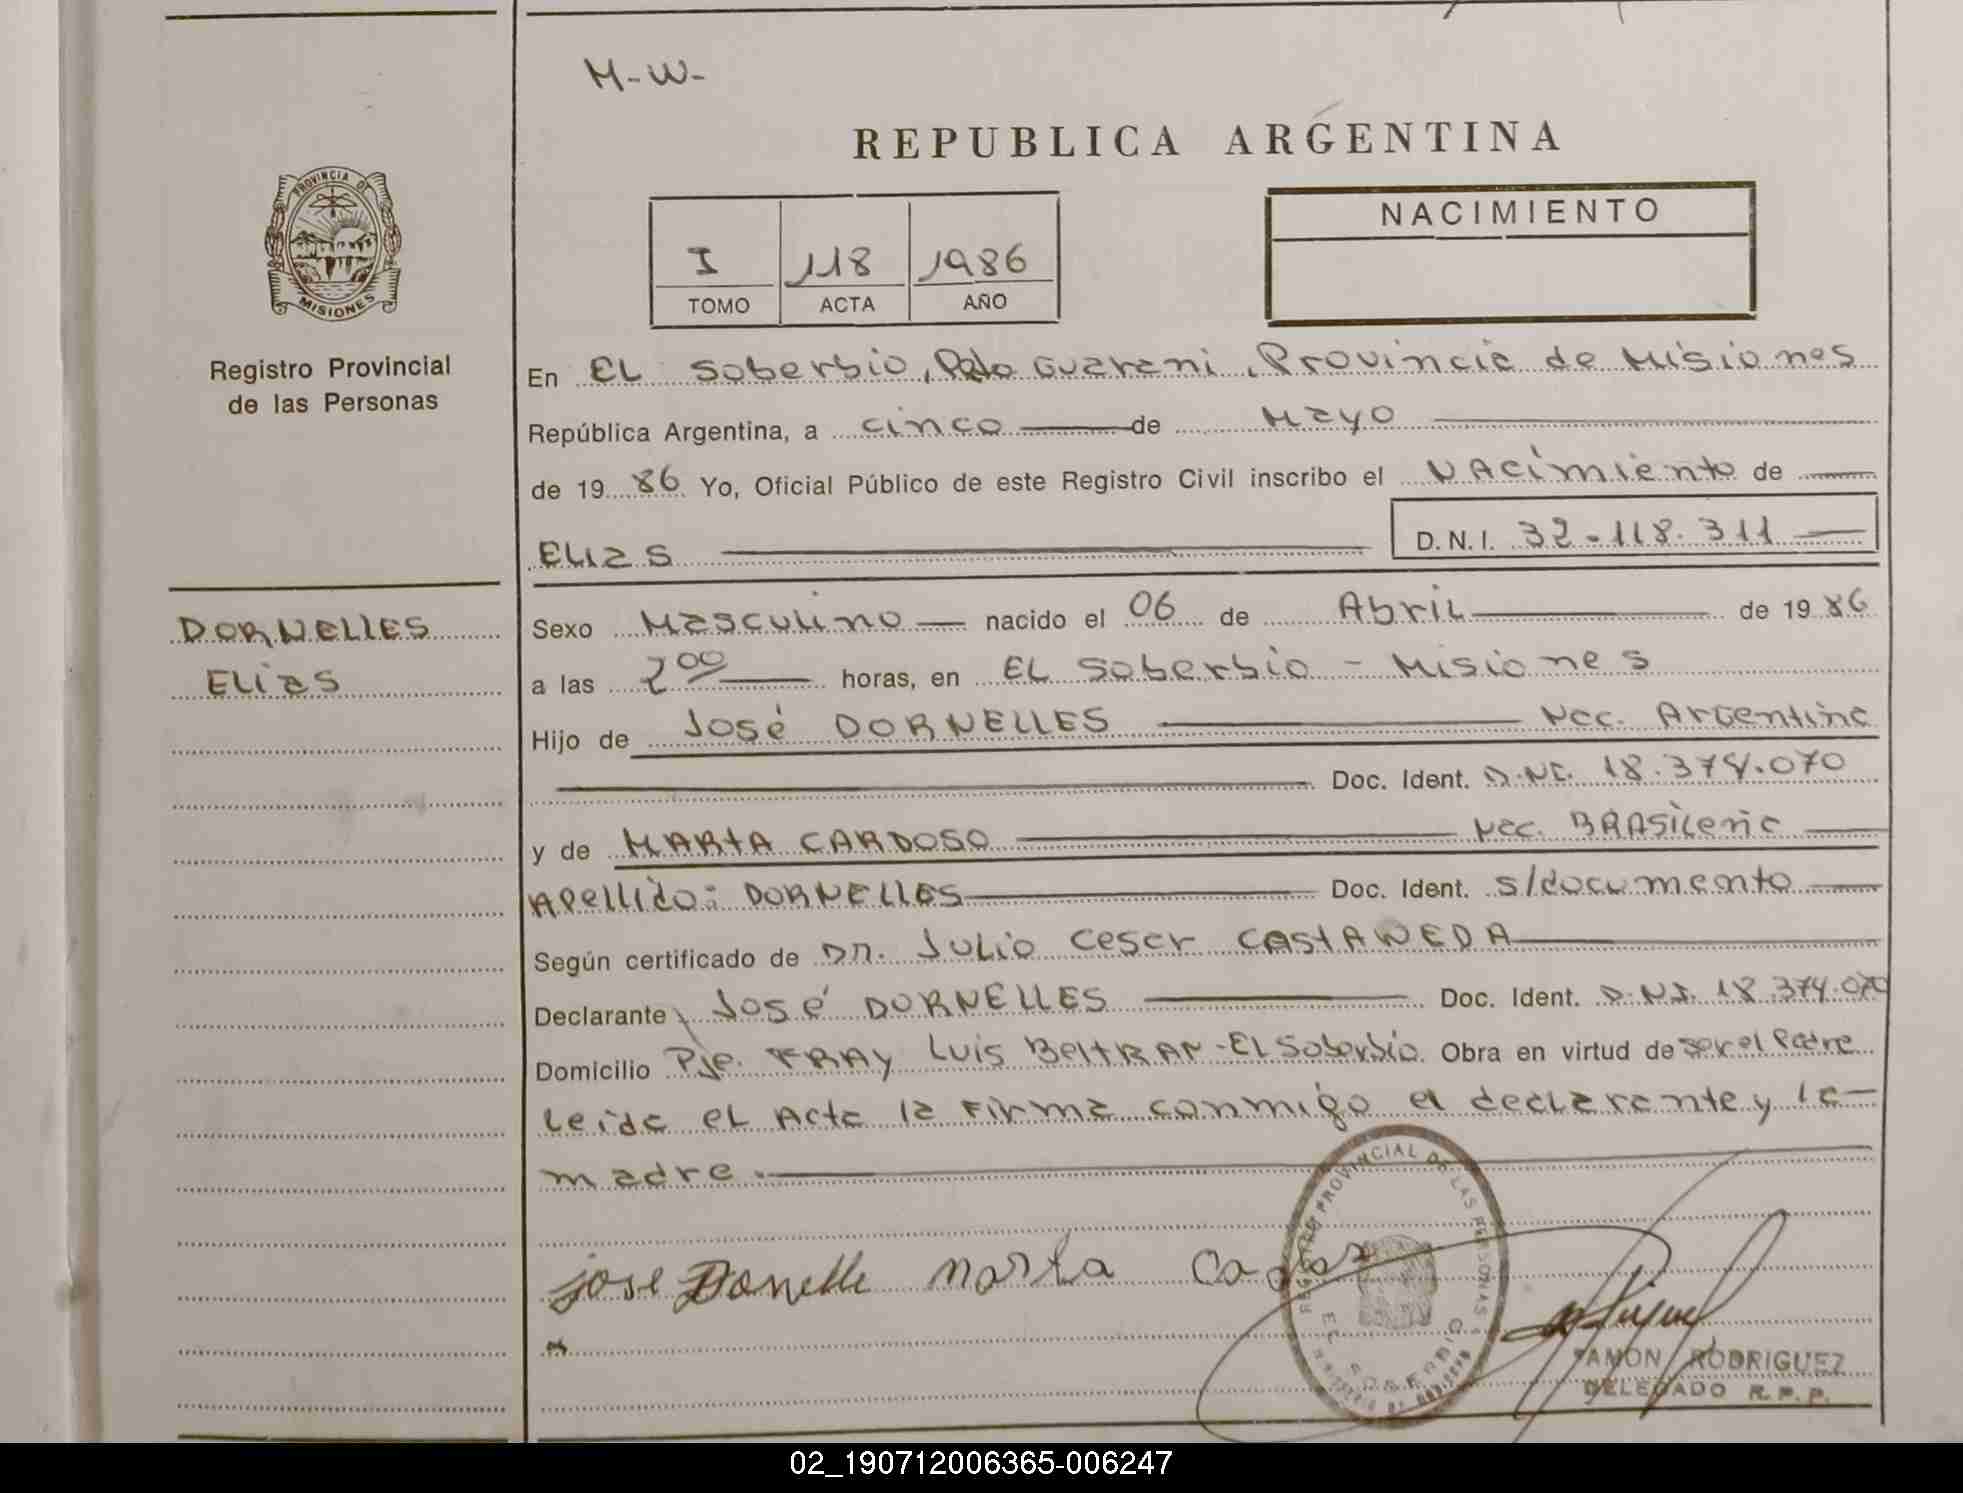 M-W-
REPUBLICA ARGENTINA
PROVINCIA DE
MISIONES
I 118 1986
TOMO ACTA AÑO
NACIMIENTO
Registro Provincial
de las Personas
En EL Soberbio, Guarani, Provincia de Misiones
República Argentina, a cinco de Mayo
de 1986 Yo, Oficial Público de este Registro Civil inscribo el NAcimiento de
ELias
D.N.I. 32-118.311
DORNELLES
Elias
Sexo Masculino nacido el 06 de Abril de 1986
a las 2 00 horas, en EL Soberbio - Misiones
Hijo de José DORNELLES Nac. Argentina
Doc. Ident. D.NI. 18.374.070
y de MARTA CARDOSO Nac. BRASilena
Apellido: DORNELLES Doc. Ident. s/documento
Según certificado de DR. Julio Cesar CASTANEDA
Declarante José DORNELLES Doc. Ident. D.N.I. 18.374.070
Domicilio Pje. FRAY Luis BeltRAN-El Soberbio Obra en virtud de ser el Padre
Leida el Acta la Firma conmigo el declarante y la
madre.
jose Donelle Marta
REGISTRO PROVINCIAL DE LAS PERSONAS
EL SOBERBIO
RAMON RODRIGUEZ
DELEGADO R.P.P.
02_190712006365-006247